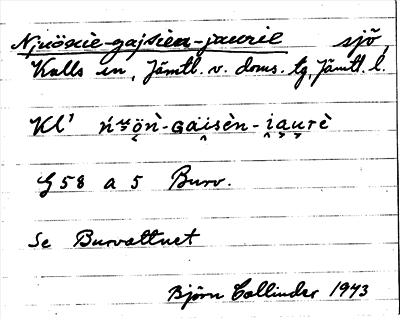 Njuöxie-gajsien-jaurie sjö
Kalls sn, Jämtl. v. doms. tg, Jämtl. l.
Kl'
G 58 a 5 Burv.
Se Burvattnet
Björn Collinder 1943